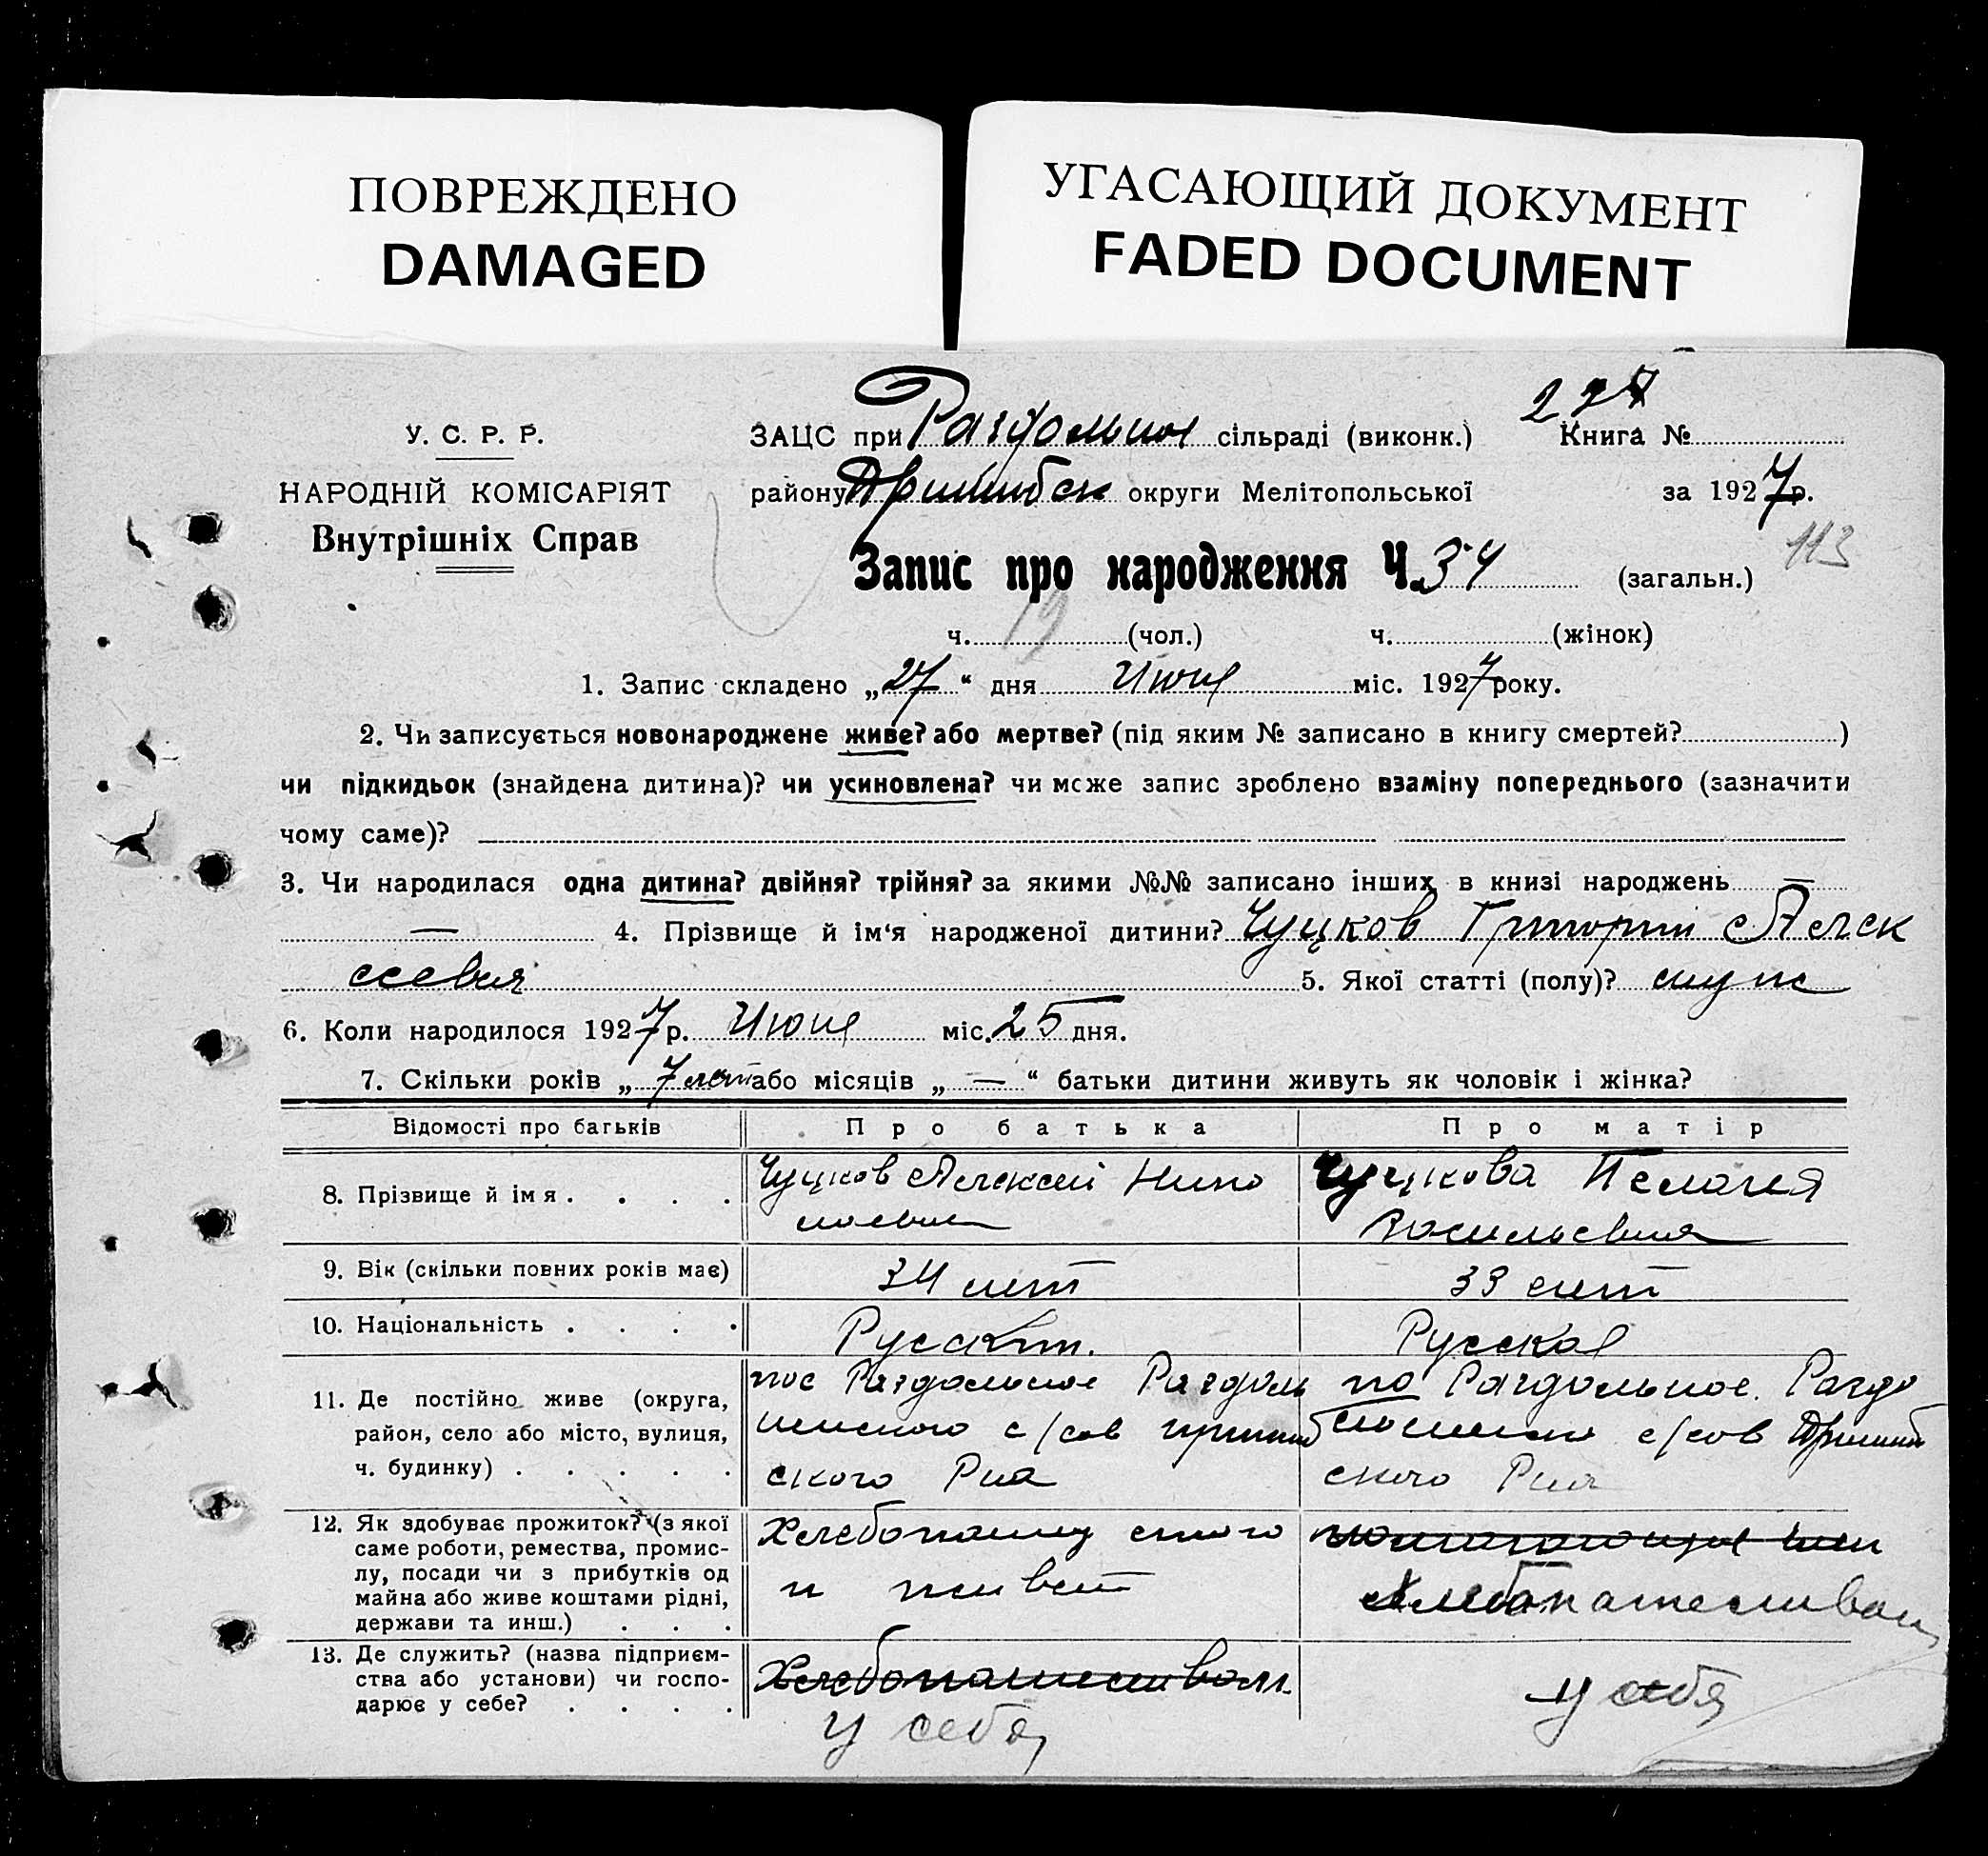 ПОВРЕЖДЕНО
DAMAGED
УГАСАЮЩИЙ ДОКУМЕНТ
FADED DOCUMENT
227
У. С. Р. Р.
НАРОДНІЙ КОМІСАРІЯТ
Внутрішніх Справ
ЗАЦС при Раздольном сільраді (виконк.) Книга №
району Пришибск округи Мелітопольської за 1927 р.
113
Запис про народження Ч. 34 (загальн.)
ч. 19 (чол.) ч. (жінок)
1. Запис складено „27“ дня Июня міс. 1927 року.
2. Чи записується новонароджене живе? або мертве? (під яким № записано в книгу смертей? )
чи підкидьок (знайдена дитина)? чи усиновлена? чи може запис зроблено взаміну попереднього (зазначити
чому саме)?
3. Чи народилася одна дитина? двійня? трійня? за якими №№ записано інших в книзі народжень —
— 4. Прізвище й ім'я народженої дитини? Чуцков Григорий Алек
сеевич 5. Якої статті (полу)? муж
6. Коли народилося 1927 р. Июня міс. 25 дня.
7. Скільки років „7 лет або місяців „—“ батьки дитини живуть як чоловік і жінка?
Відомості про батьків Про батька Про матір
8. Прізвище й імя . . . .
Чуцков Алексей Нико
лаевич
Чуцкова Пелагея
Васильевна
9. Вік (скільки повних років має) 34 лет 33 лет
10. Національність . . . . Русский. Русская
11. Де постійно живе (округа,
район, село або місто, вулиця,
ч. будинку) . . . . .
пос Раздольное Раздоль
ненского с/сов пришиб
ского Р-на
по Раздольное. Раздо
с/сов Пришиб
ского Р-на
12. Як здобуває прожиток? (з якої
саме роботи, ремества, промис-
лу, посади чи з прибутків од
майна або живе коштами рідні,
держави та инш.) . . .
Хлебопашец
и живет
Хлебопашеством
13. Де служить? (назва підприєм-
ства або установи) чи госпо-
дарює у себе? . . . .
Хлебопашеством.
у себя
у себя